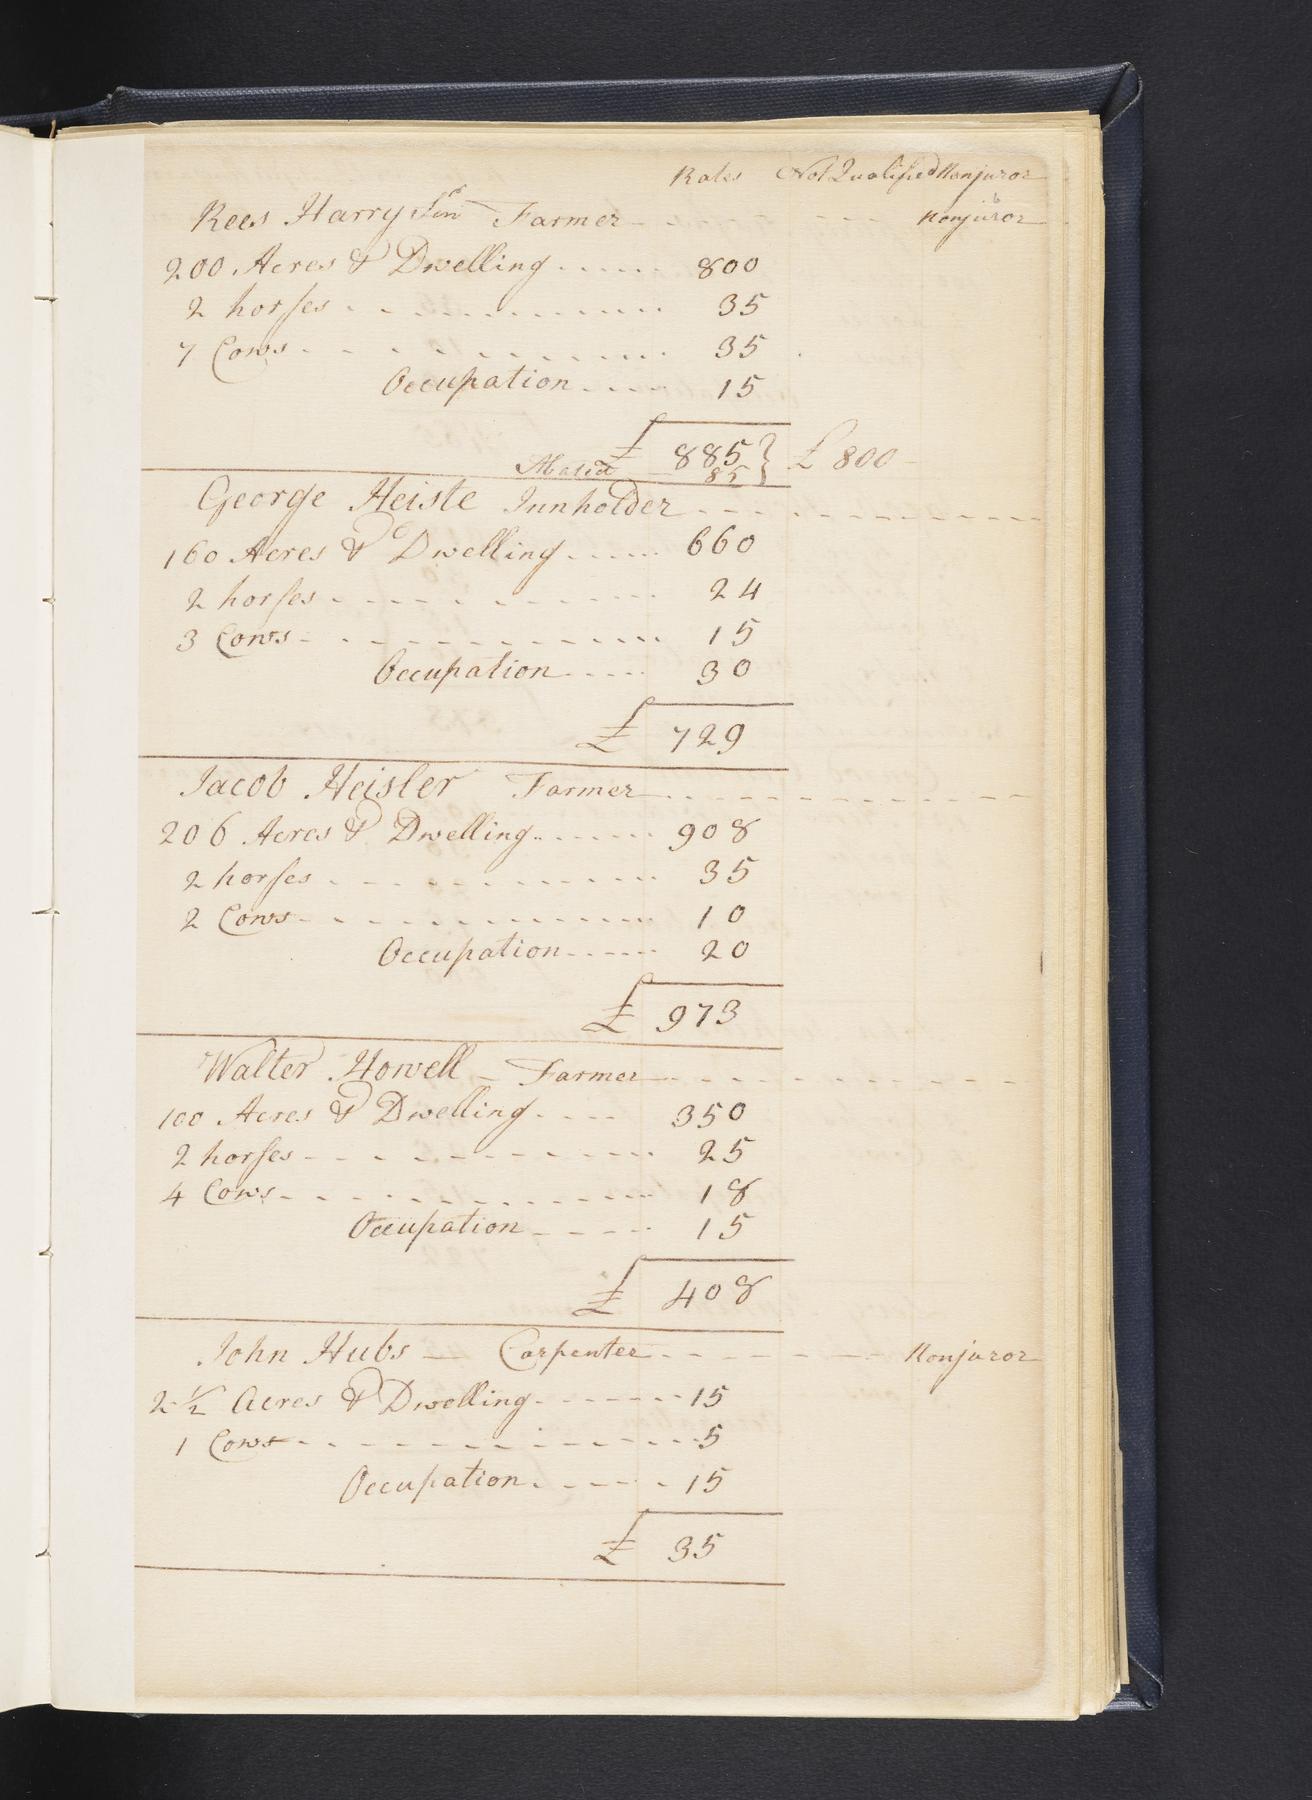 Rates Not Qualified Nonjuror
Rees Harry Senr Farmer Nonjuror
200 Acres & Dwelling ...... 800
2 horses ...... 35
7 Cows ...... 35
Occupation ..... 15
£ 885 } £ 800
Abated 85 }
George Heisle Innholder
160 Acres & Dwelling ...... 660
2 horses ...... 24
3 Cows ...... 15
Occupation ..... 30
£ 729
Jacob Heisler Farmer
206 Acres & Dwelling ...... 908
2 horses ...... 35
2 Cows ...... 10
Occupation ...... 20
£ 973
Walter Howell - Farmer
100 Acres & Dwelling .... 350
2 horses ...... 25
4 Cows ...... 18
Occupation .... 15
£ 408
John Hubs — Carpenter Nonjuror
2 1/2 Acres & Dwelling ...... 15
1 Cows ...... 5
Occupation ..... 15
£ 35